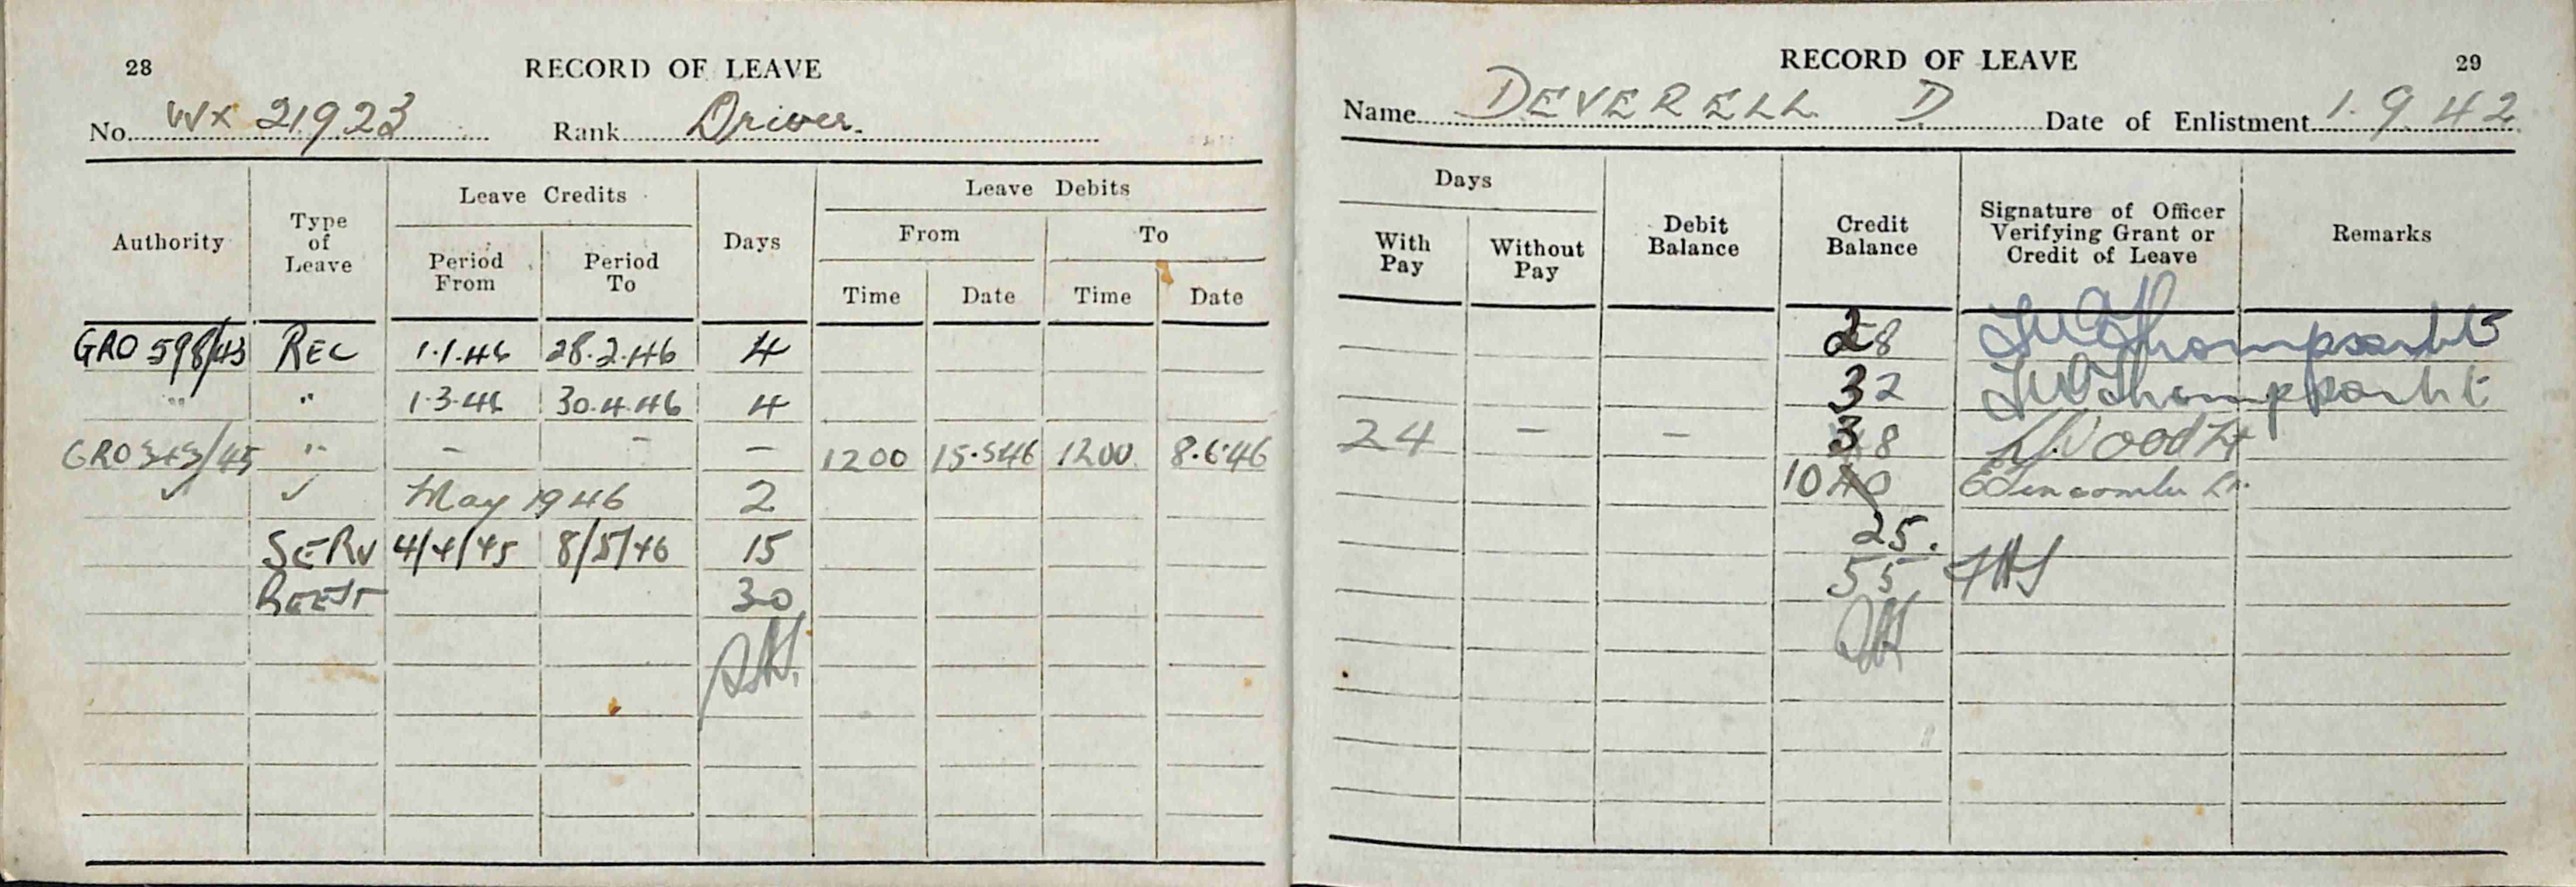 28 RECORD OF LEAVE
No. WX 21923 Rank Driver.
Authority Type of Leave Leave Credits Days Leave Debits
Period From Period To From To
Time Date Time Date
GRO 598/43 REC 1.1.46 28.2.46 4
" " 1.3.46 30.4.46 4
GRO 343/45 " - - - 1200 15.5.46 1200 8.6.46
May 1946 2
SERV 4/4/45 8/5/46 15
30
RECORD OF LEAVE 29
Name DEVERELL D Date of Enlistment 1.9.42
Days Debit Balance Credit Balance Signature of Officer Verifying Grant or Credit of Leave Remarks
With Pay Without Pay
28 Thompson Lt
32 Thompson Lt
24 - - 8 Wood Lt
10
25.
55